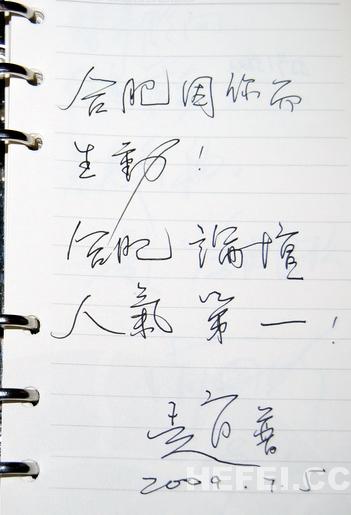 合肥因你而
生動!
合肥論壇
人氣第一!
2009.7.5
HEFEI.CC